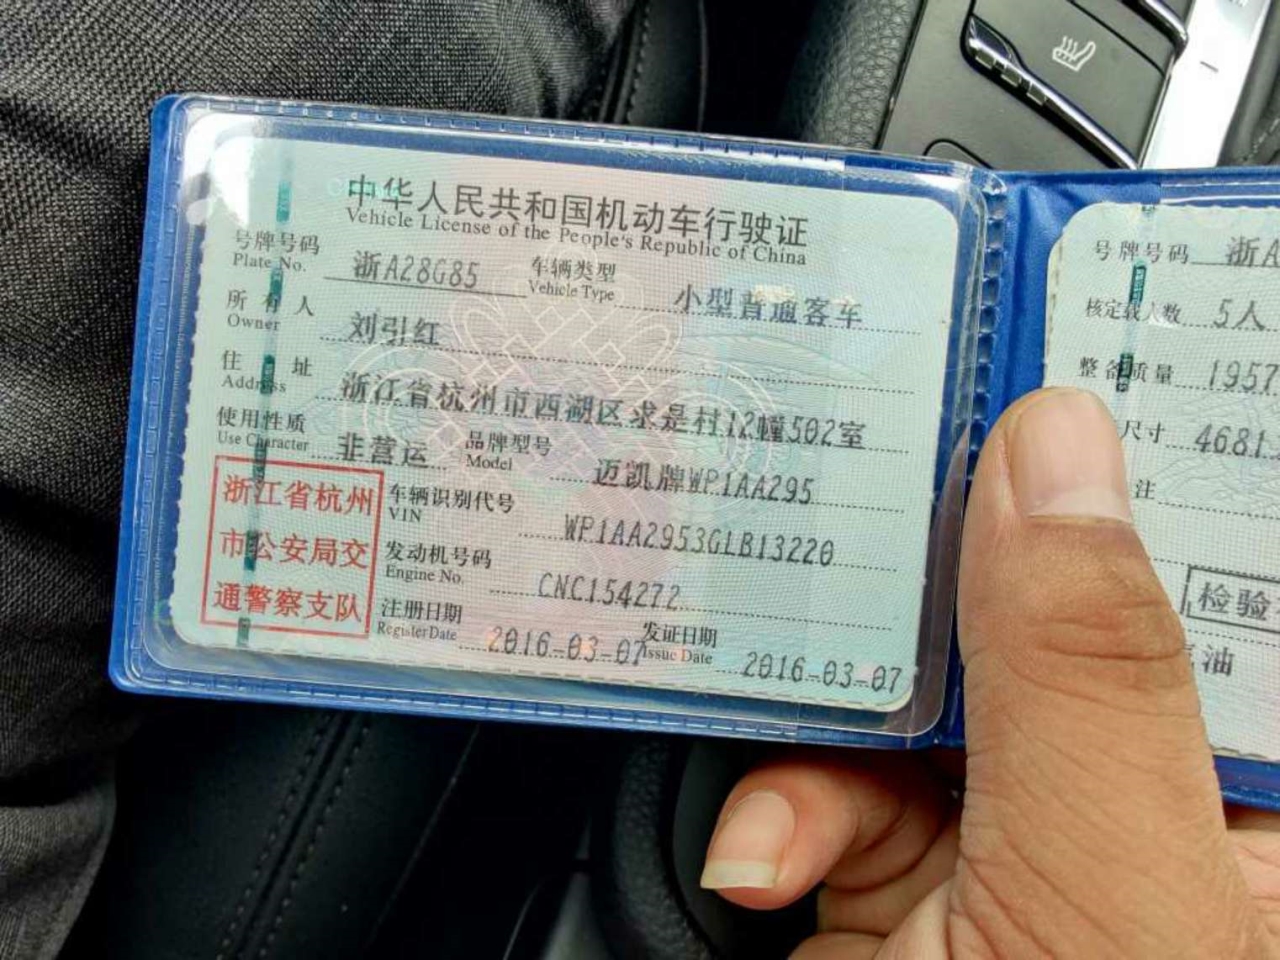 中华人民共和国机动车行驶证
Vehicle License of the People's Republic of China
号牌号码 浙A28G85 车辆类型 小型普通客车
Plate No. Vehicle Type
所有人 刘引红
Owner
住址 浙江省杭州市西湖区求是村12幢502室
Address
使用性质 非营运 品牌型号 迈凯牌WP1AA295
Use Character Model
浙江省杭州
市公安局交
通警察支队
车辆识别代号 WP1AA2953GLB13220
VIN
发动机号码 CNC154272
Engine No.
注册日期 2016-03-07 发证日期 2016-03-07
Register Date Issue Date
号牌号码 浙A
核定载人数 5人
整备质量 1957
尺寸 4681
注
检验
油